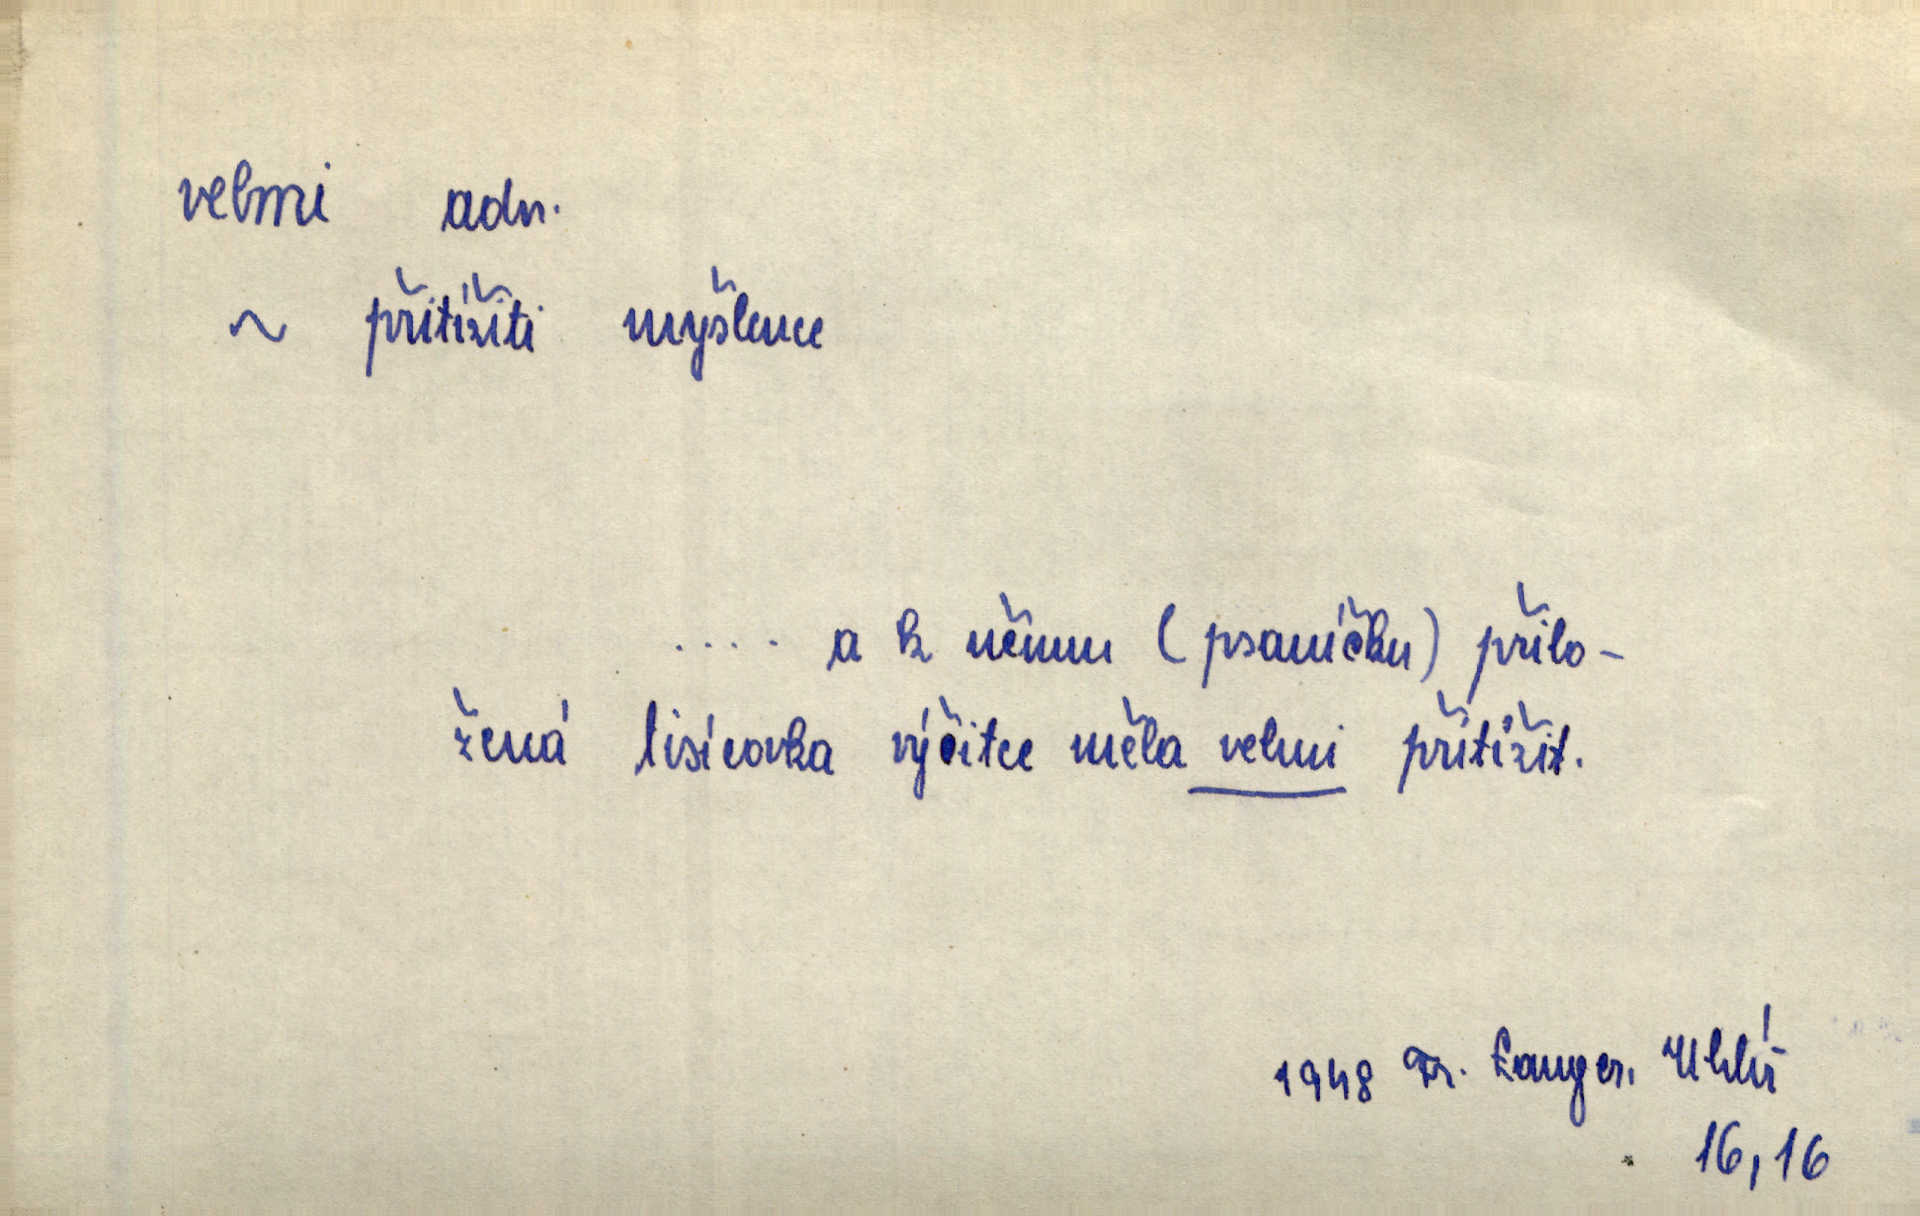 velmi adv.
~ přitížiti myšlence
.... a k němu (psaníčku) přilo-
žená tisícovka výčitce měla velmi přitížit.
1948 Fr. Langer, Uhlíř
16,16